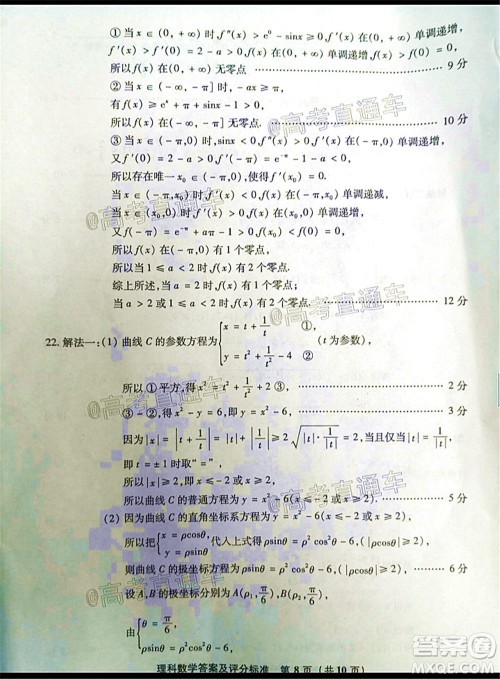 ① 当 x∈(0, +∞) 时, f″(x) > e⁰ - sinx > 0, f′(x) 在 (0, +∞) 单调递增,
f′(x) > f′(0) = 2 - a > 0, f(x) 在 (0, +∞) 单调递增, f(x) > f(0) = 0,
所以 f(x) 在 (0, +∞) 无零点 ………… 9 分
② 当 x∈(-∞, -π] 时, -ax ≥ π,
有 f(x) ≥ eˣ + π + sinx - 1 > 0,
所以 f(x) 在 (-∞, -π] 无零点. ………… 10 分
③ 当 x∈(-π,0) 时, sinx < 0, f″(x) > 0, f′(x) 在 (-π,0) 单调递增,
又 f′(0) = 2 - a > 0, f′(-π) = e^{-π} - 1 - a < 0,
所以存在唯一 x₀∈(-π,0), 使得 f′(x₀) = 0.
当 x∈(-π,x₀) 时, f′(x) < 0, f(x) 在 (-π,x₀) 单调递减,
当 x∈(x₀,0) 时, f′(x) > 0, f(x) 在 (x₀,0) 单调递增,
又 f(-π) = e^{-π} + aπ - 1 > 0, f(0) = 0,
所以 f(x) 在 (-π,0) 有 1 个零点.
所以当 1 ≤ a < 2 时, f(x) 有 2 个零点.
综上所述, 当 1 ≤ a ≤ 2 时, f(x) 有 1 个零点;
当 a > 2 或 1 ≤ a < 2 时, f(x) 有 2 个零点. ………… 12 分
22. 解法一: (1) 曲线 C 的参数方程为 { x = t + 1/t ①, y = t² + 1/t² - 4 ② (t 为参数),
所以 ① 平方, 得 x² = t² + 1/t² + 2 ③, ………… 2 分
③ - ②, 得 x² - y = 6, 即 y = x² - 6, ………… 3 分
因为 |x| = |t + 1/t| = |t| + |1/t| ≥ 2√(|t|·|1/t|) = 2, 当且仅当 |t| = |1/t|,
即 t = ±1 时取“=”,
所以 |x| ≥ 2, 即 x ≤ -2 或 x ≥ 2,
所以曲线 C 的普通方程为 y = x² - 6(x ≤ -2 或 x ≥ 2). ………… 5 分
(2) 因为曲线 C 的直角坐标系方程为 y = x² - 6(x ≤ -2 或 x ≥ 2),
所以把 { x = ρcosθ, y = ρsinθ, 代入上式得 ρsinθ = ρ²cos²θ - 6, (|ρcosθ| ≥ 2),
则曲线 C 的极坐标方程为 ρsinθ = ρ²cos²θ - 6, (|ρcosθ| ≥ 2). ………… 6 分
设 A,B 的极坐标分别为 A(ρ₁, π/6), B(ρ₂, π/6),
由 { θ = π/6, ρsinθ = ρ²cos²θ - 6,
理科数学答案及评分标准 第 8 页 (共 10 页)
@高考直通车
@高考直通车
@高考直通车
@高考直通车
@高考直通车
答案圈